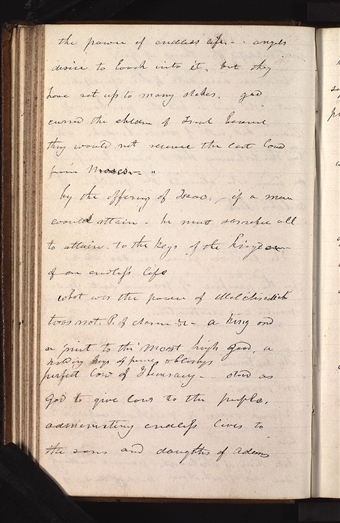 the power of endless life. - angels
desire to look into it, but they
have set up to many stakes. god
cursed the children of Israel because
they would not receive the last law
from Moses - "
by the offering of Isaac. - if a man
would attain - he must sacrifice all
to attain to the keys of the kingdom
of an endless life
what was the power of Melchisedick
twas not P. of Aaron &c - a king and
a priest to the most high God. a
holding keys of power & blessings
perfect law of Theocracy - stand as
God to give laws to the people.
administering endless lives to
the sons and daughters of Adam